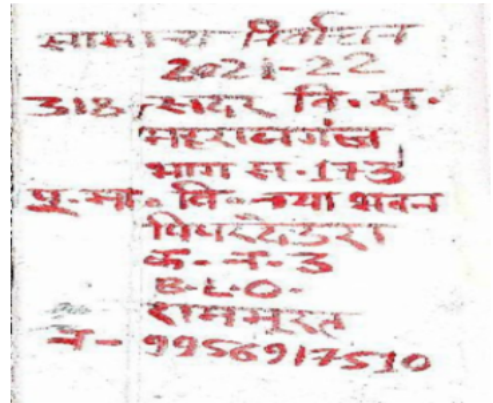 सामान्य निर्वाचन
2021-22
318 सदर वि.स.
महराजगंज
भाग स.173
पू.मा. वि. नया भवन
पिपरदेउरा
क. न. 3
B.L.O.
राममूरत
न- 9956917510